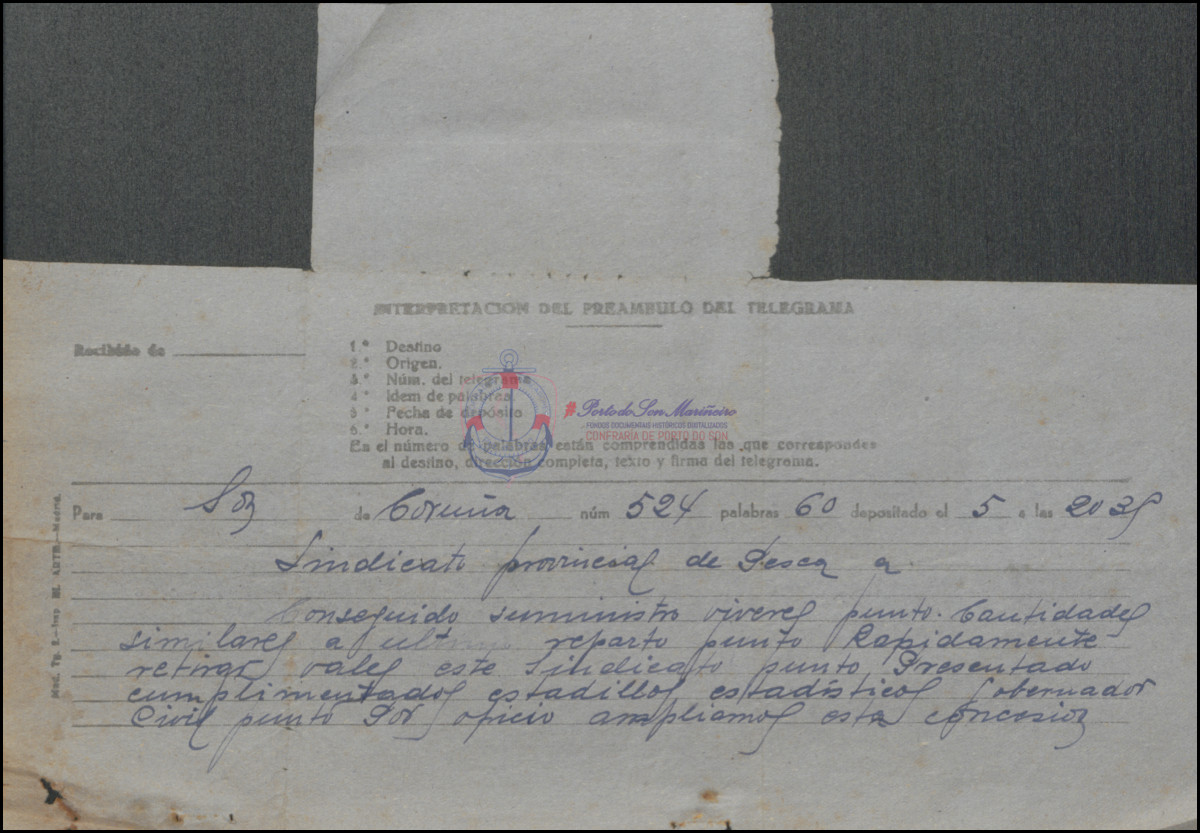 INTERPRETACION DEL PREAMBULO DEL TELEGRAMA
Recibido de
1.º Destino
2.º Origen.
3.º Núm. del telegrama
4.º Idem de palabras
5.º Fecha de depósito
6.º Hora.
En el número de palabras están comprendidas las que correspondes
al destino, dirección completa, texto y firma del telegrama.
#PortodoSon Mariñeiro
FONDOS DOCUMENTAIS HISTÓRICOS DIGITALIZADOS
CONFRARÍA DE PORTO DO SON
Para Son de Coruña núm 524 palabras 60 depositado el 5 a las 2035
Sindicato provincial de Pesca a
Conseguido suministro viveres punto. Cantidades
similares a ultimo reparto punto Rapidamente
retirar vales este Sindicato punto Presentado
cumplimentados estadillos estadísticos Gobernador
Civil punto Por oficio ampliamos esta concesion
Mod. Tg. 2.—Imp
—Madrid.